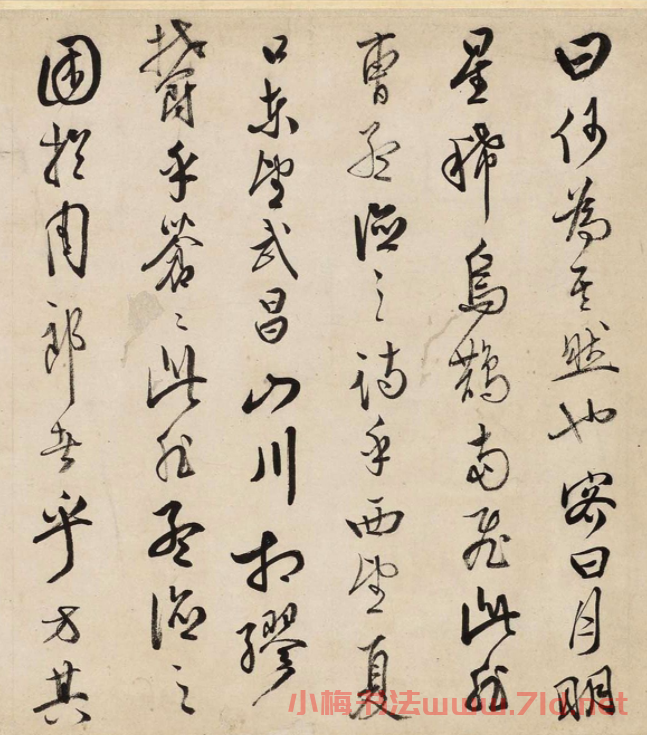 曰何為其然也客曰月明
星稀烏鵲南飛此非
曹孟德之詩乎西望夏
口東望武昌山川相繆
鬱乎蒼〻此非孟德之
困於周郎者乎方其
小梅书法www.7ld.net